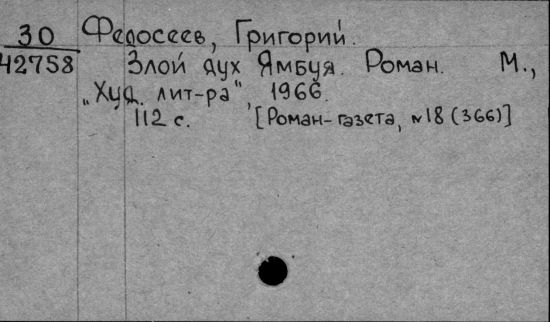 30 Федосеев, Григорий.
42758 Злой дух Ямбуя. Роман. М.,
„Худ. лит-ра", 1966.
112 с. [Роман-газета, №18 (366)]